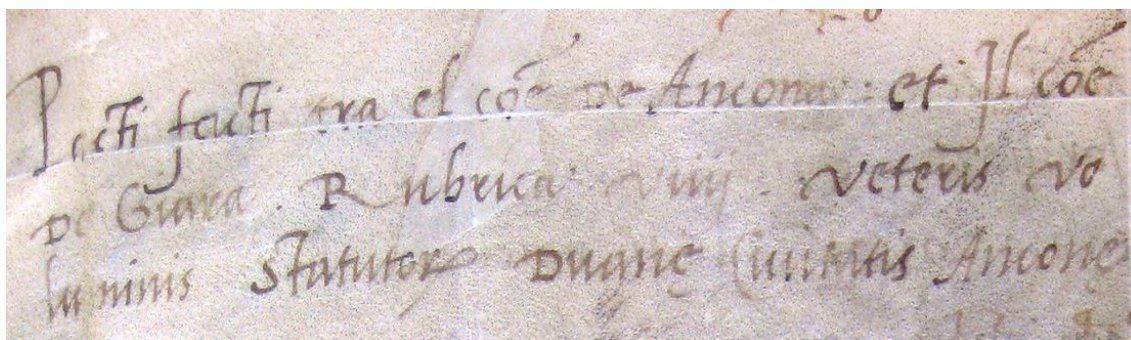 Pacti facti tra el cõe de Ancona: et Il cõe
De Giara. Rubrica viiij. veteris vo
luminis Statutor Duane Civitatis Ancone